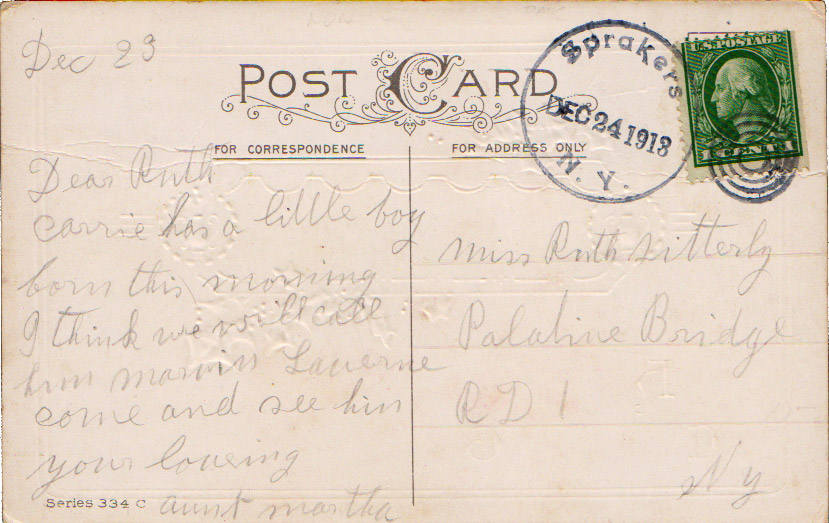 Dec 23
POST CARD
FOR CORRESPONDENCE
FOR ADDRESS ONLY
Sprakers
DEC 24 1913
N. Y.
U.S. POSTAGE
1 CENT 1
Dear Ruth
Carrie has a little boy
born this morning
I think we will call
him marvin Laverne
come and see him
your loveing
aunt martha
Series 334 C
Miss Ruth Sitterly
Palatine Bridge
R D 1
N y